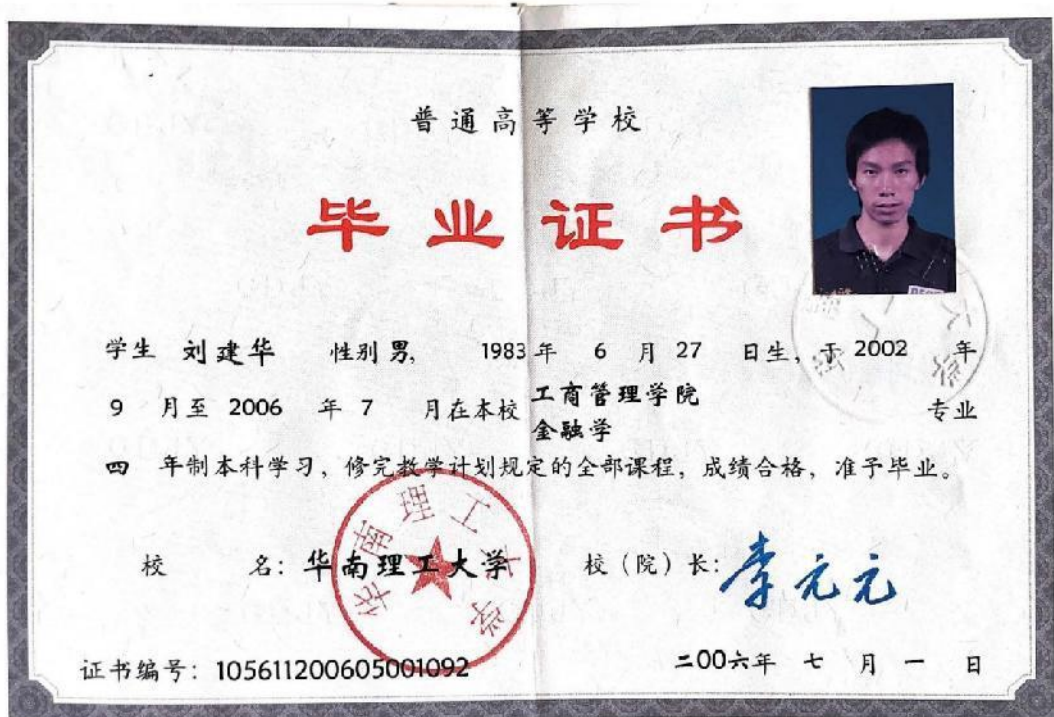 普通高等学校
毕业证书
学生 刘建华 性别 男, 1983 年 6 月 27 日生, 于 2002 年
9 月至 2006 年 7 月在本校 工商管理学院 金融学 专业
四 年制本科学习, 修完教学计划规定的全部课程, 成绩合格, 准予毕业。
华南理工大学
校 名: 华南理工大学 校(院)长: 李元元
证书编号: 105611200605001092 二00六年 七 月 一 日